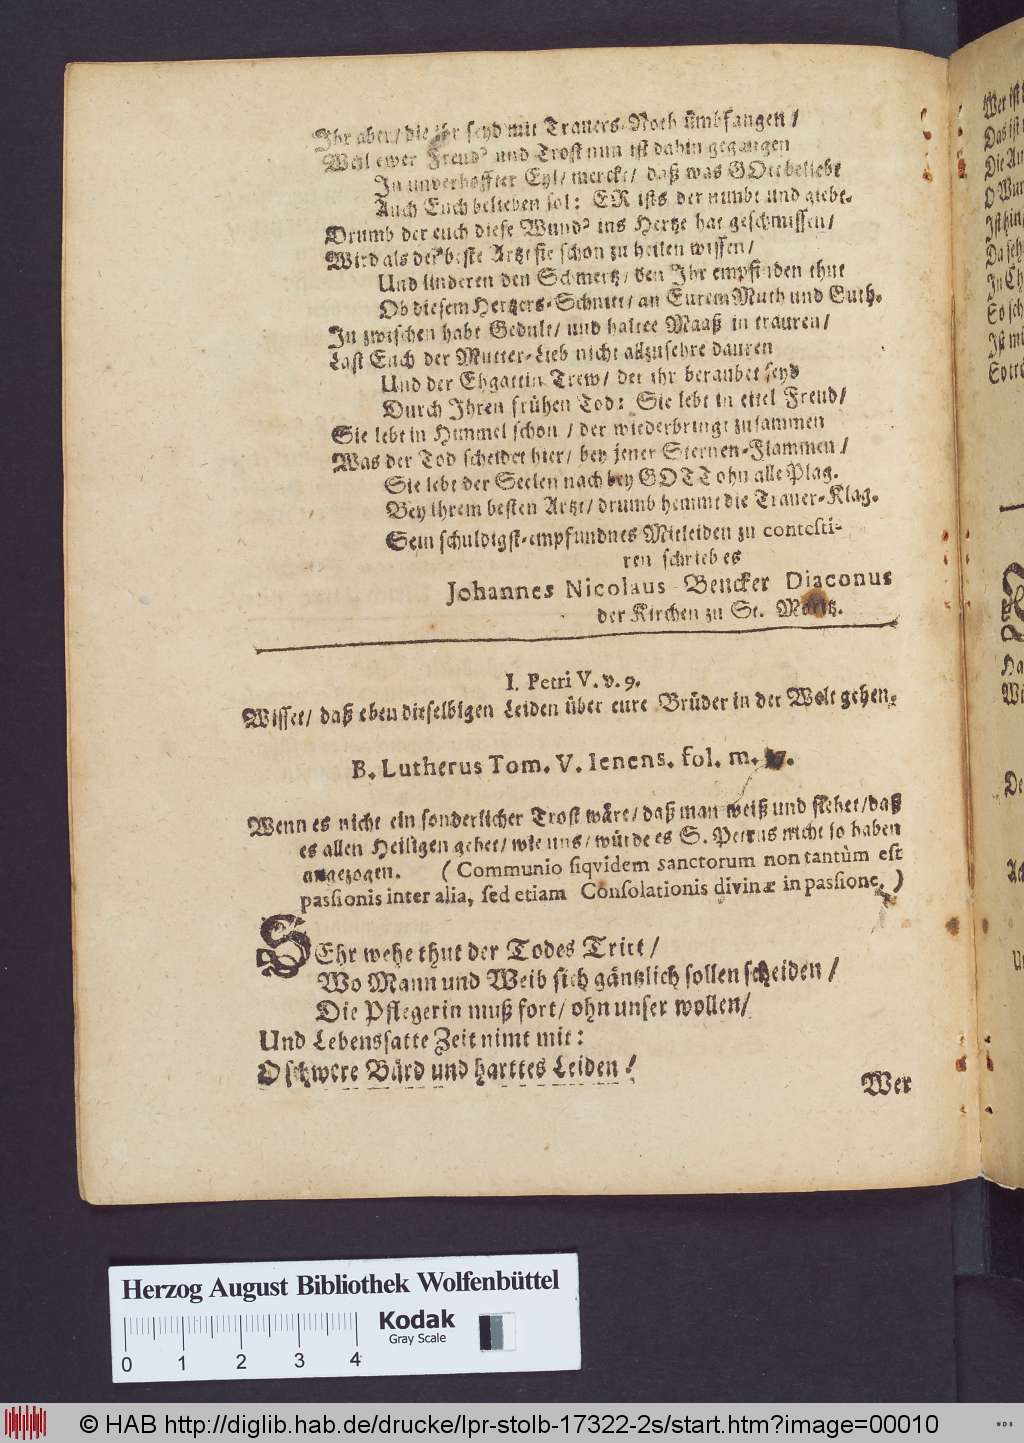 Ihr aber/ die ihr seyd mit Trauers-Noth ümbfangen/
Weil ewer Freud' und Trost nun ist dahin gegangen
In unverhoffter Eyl/ mercket/ daß was GOtt beliebt
Auch Euch belieben sol: ER ists der nimbt und giebt.
Drumb der euch diese Wund' ins Hertze hat geschmissen/
Wird als der beste Artzt sie schon zu heilen wissen/
Und linderen den Schmertz/ den Ihr empfinden thut
Ob diesem Hertzers-Schnitt/ an Eurem Muth und Guth.
In zwischen habt Gedult/ und haltet Maaß in trauren/
Last Euch der Mutter-Lieb nicht allzusehre dauren
Und der Ehgattin Trew/ der ihr beraubet seyd
Durch Ihren frühen Tod: Sie lebt in eitel Freud/
Sie lebt in Himmel schon/ der wiederbringt zusammen
Was der Tod scheidet hier/ bey jener Sternen-Flammen/
Sie lebt der Seelen nach bey GOTT ohn alle Plag.
Bey ihrem besten Artzt/ drumb hemmt die Trauer-Klag.
Sein schuldigst-empfundnes Mitleiden zu contesti-
ren schrieb es
Johannes Nicolaus Bencker Diaconus
der Kirchen zu St. Moritz.
I. Petri V. v. 9.
Wisset/ daß eben dieselbigen Leiden über eure Brüder in der Welt gehen.
B. Lutherus Tom. V. Ienens. fol. m.
Wenn es nicht ein sonderlicher Trost wäre/ daß man weiß und siehet/ daß
es allen Heiligen gehet/ wie uns/ würde es S. Petrus nicht so haben
angezogen. (Communio siqvidem sanctorum non tantùm est
passionis inter alia, sed etiam Consolationis divinæ in passione.)
SEhr wehe thut der Todes Tritt/
Wo Mann und Weib sich gäntzlich sollen scheiden/
Die Pflegerin muß fort/ ohn unser wollen/
Und Lebenssatte Zeit nimt mit:
O schwere Bürd und harttes Leiden!
Wer
Herzog August Bibliothek Wolfenbüttel
Kodak
Gray Scale
0 1 2 3 4
© HAB http://diglib.hab.de/drucke/lpr-stolb-17322-2s/start.htm?image=00010